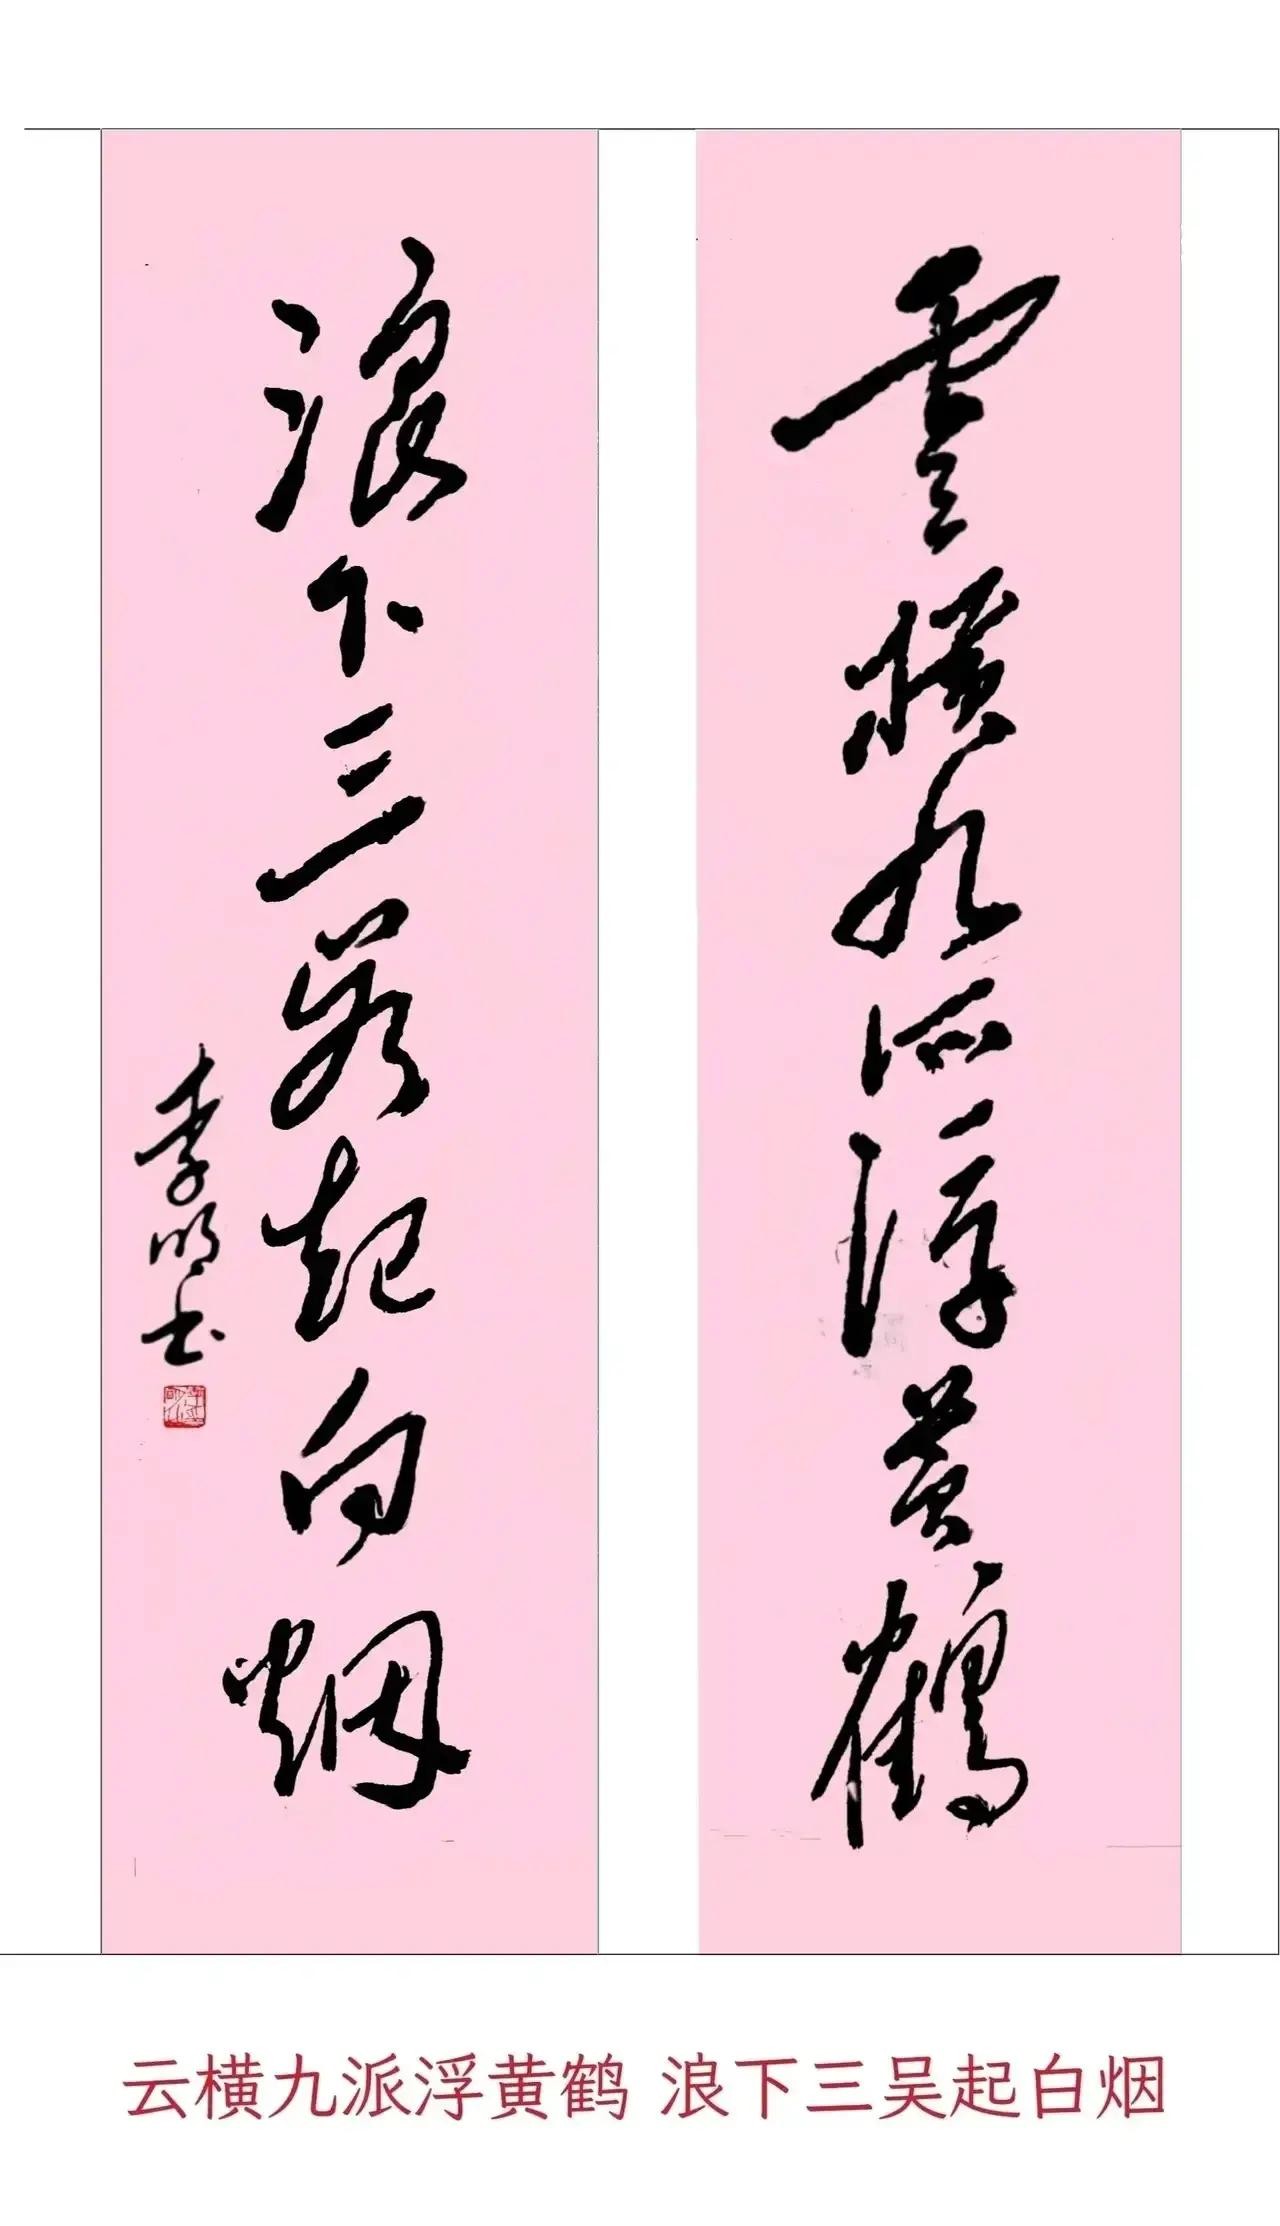 雲横九派浮黄鶴
浪下三吴起白烟
李明书
云横九派浮黄鹤 浪下三吴起白烟